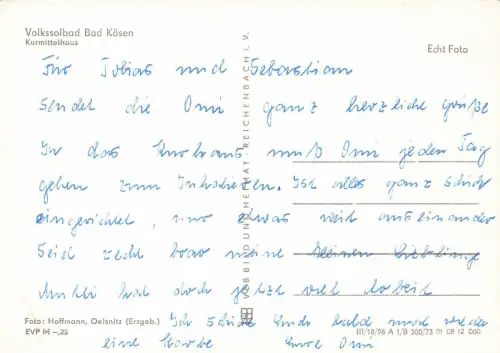 Volkssolbad Bad Kösen
Kurmittelhaus
Echt Foto
Für Tobias und Sebastian
sendet die Omi ganz herzliche Grüße
In das Kurhaus muß Omi jeden Tag
gehen zum Inhalieren. Ist alles ganz schick
eingerichtet, nur etwas weit auseinander
Seid recht brav meine kleinen Lieblinge
Mutti hat doch jetzt viel Arbeit
Ich schicke Euch bald mal wieder
eine Karte Eure Omi
VEB BILD UND HEIMAT REICHENBACH i. V.
Foto: Hoffmann, Oelsnitz (Erzgeb.)
EVP M –,25
III/18/98 A 1/B 300/73 01 08 12 060